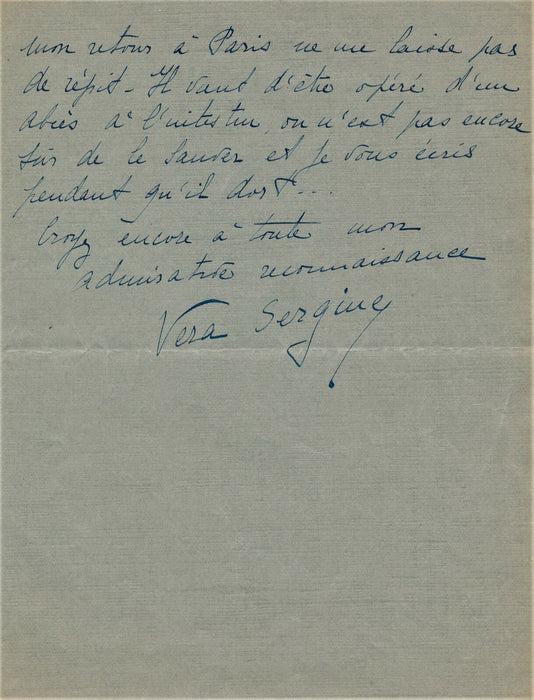 mon retour à Paris ne me laisse pas
de répit - Il vient d'être opéré d'un
abcès à l'intestin, on n'est pas encore
sûr de le sauver et je vous écris
pendant qu'il dort...
Croyez encore à toute mon
admirative reconnaissance
Vera Sergine